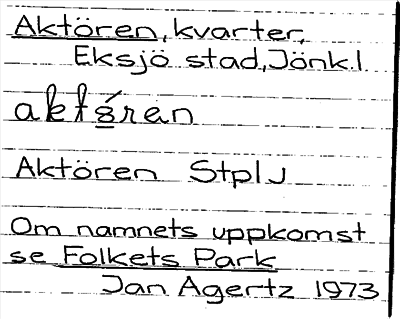 Aktören, kvarter,
Eksjö stad, Jönk.l.
aktǿ̱ren
Aktören StplJ
Om namnets uppkomst
se Folkets Park
Jan Agertz 1973